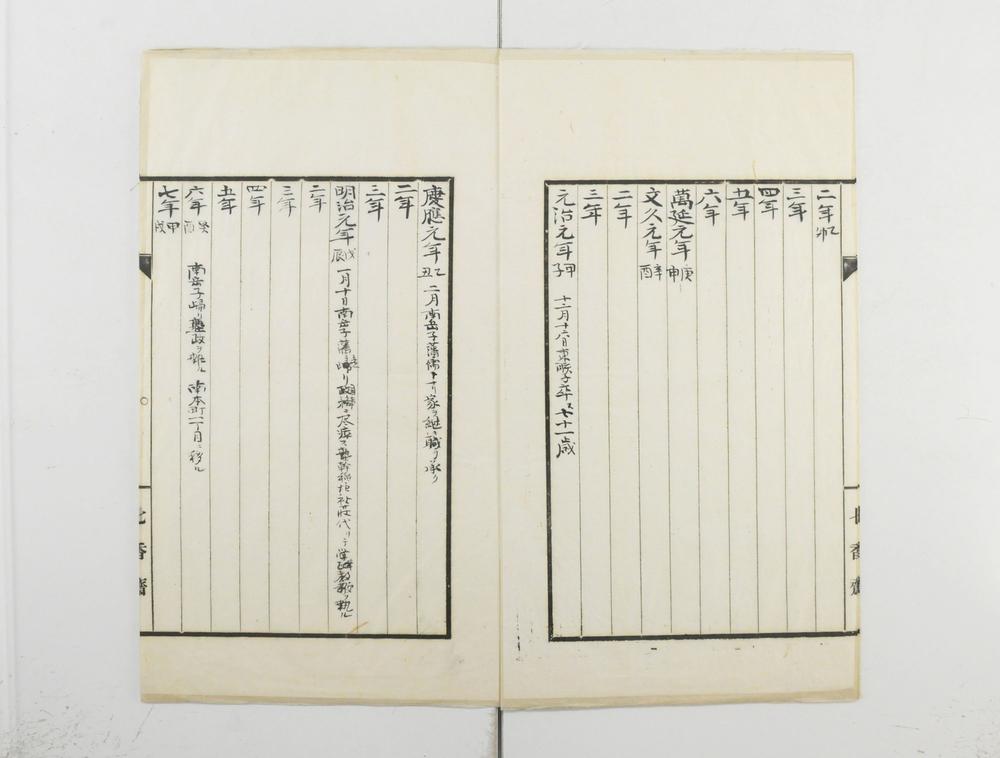 二年 乙卯
三年
四年
五年
六年
萬延元年 庚申
文久元年 辛酉
二年
三年
元治元年 甲子 十二月十六日東畡子卒ス七十一歳
慶應元年 乙丑 二月南岳子藩儒トナリ家ヲ継キ職ヲ承ク
二年
三年
明治元年 戊辰 一月十日南岳子藩ニ帰リ
二年
三年
四年
五年
六年 癸酉 南岳子帰リ塾政ヲ掌ル 南本町一丁目ニ移ル
七年 甲戌
七香齋
七香齋